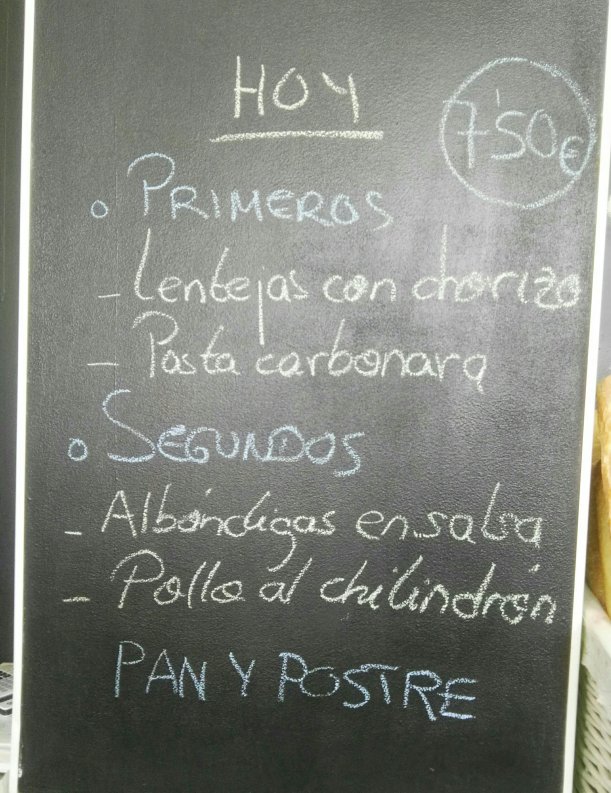 HOY
7'50€
• PRIMEROS
- Lentejas con chorizo
- Pasta carbonara
• SEGUNDOS
- Albóndigas en salsa
- Pollo al chilindrón
PAN Y POSTRE